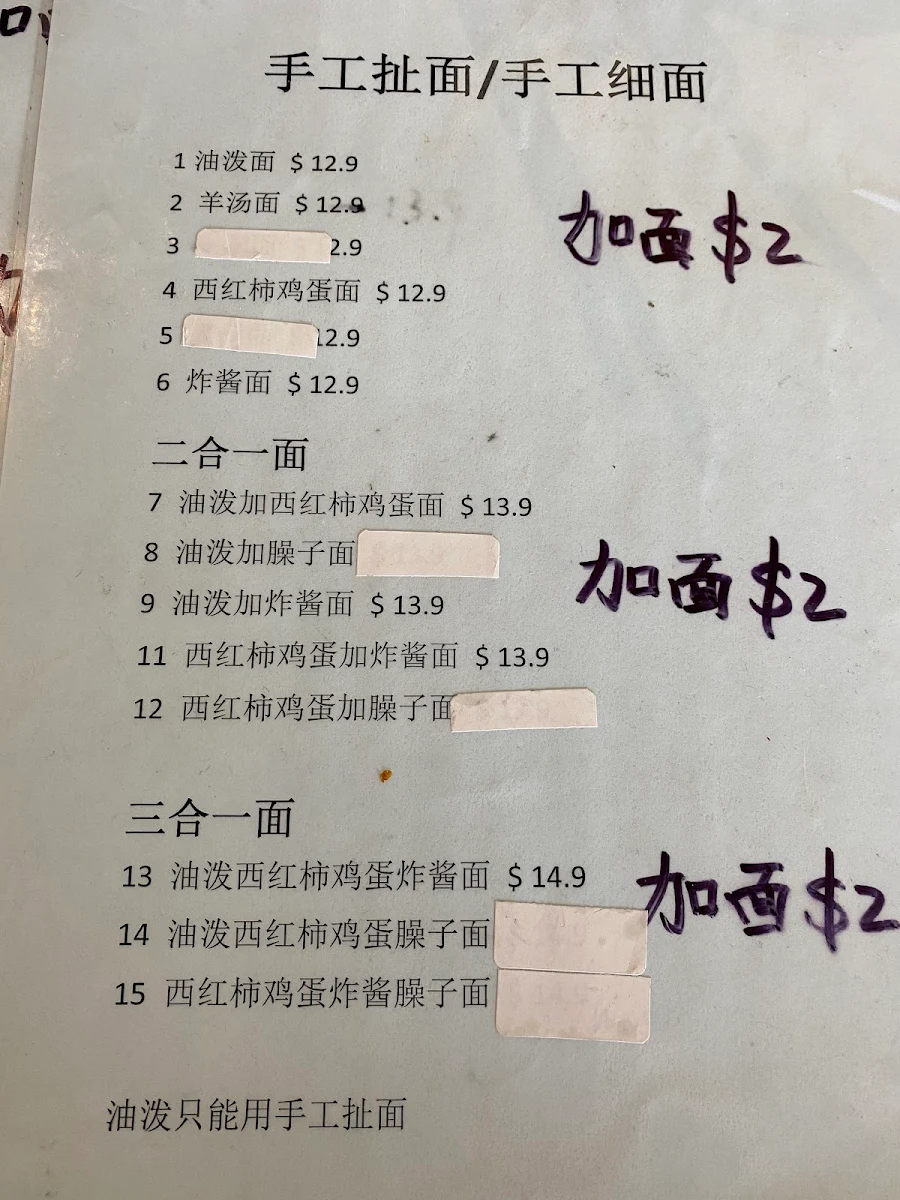 手工扯面/手工细面
1 油泼面 $ 12.9
2 羊汤面 $ 12.9
加面 $2
3 2.9
4 西红柿鸡蛋面 $ 12.9
5 12.9
6 炸酱面 $ 12.9
二合一面
7 油泼加西红柿鸡蛋面 $ 13.9
8 油泼加臊子面
加面 $2
9 油泼加炸酱面 $ 13.9
11 西红柿鸡蛋加炸酱面 $ 13.9
12 西红柿鸡蛋加臊子面
三合一面
13 油泼西红柿鸡蛋炸酱面 $ 14.9
加面 $2
14 油泼西红柿鸡蛋臊子面
15 西红柿鸡蛋炸酱臊子面
油泼只能用手工扯面